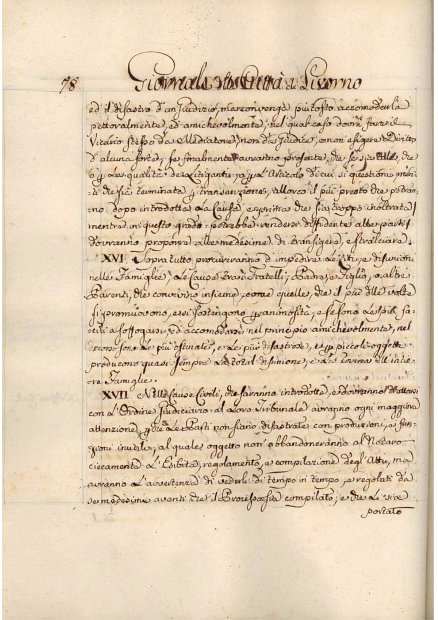 78
ed il disastro d'un giudizio, ma convenga più tosto accomodarla
pettoralmente, ed amichevolmente; nel qual caso dovrà farseil
Vicario stesso da Mediatore, e non da Giudice, e non esigere Diritto
d'alcuna sorte; se finalmente avranno presente, che se sia utile, che
o p. la qualità de Litiganti, o p. l'Articolo di cui si questiona meri-
ti che sia terminata p. transunzione, allora il più presto che potran-
no, dopo introdotta la Causa, e prima che sia troppo inoltrata
mentre in questo grado potrebbe rendersi diffidente alle parti
dovranno proporre alle medesime di transigere, e stralciare.
XVI. Sopra tutto procureranno d'impedire le Liti, e disunioni
nelle Famiglie, e le Cause tra i Fratelli, Padre, e Figlio, o altre
Parenti, che convivino insieme, come quelle, che il più delle volte
si promuovono, e si sostengono p. animosità, e se sono le più fa-
cili a soffogarsi, ed accomodarsi nel principio amichevolmente, nel
sono le più ostinate, e le più disastrose, e p. piccoli oggetti
producono quasi sempre la total disunione, e la rovina dell'inte-
re Famiglie.
XVII. Nelle Cause Civili, che saranno introdotte, e dovranno trattarsi
con l'Ordine Giudiciario al loro Tribunale avranno ogni maggiore
attenzione, p. che le Parti non siano disastrate con produzioni, e fun-
zioni inutili, al quale oggetto non abbandoneranno al Notaro
ciecamente l'Esibita, regolamento, e compilazione degl'Atti, ma
avranno l'avvertenza di vederli di tempo in tempo, e regolati da
se medesime avanti che il Processo sia compilato, e che li sia
portato